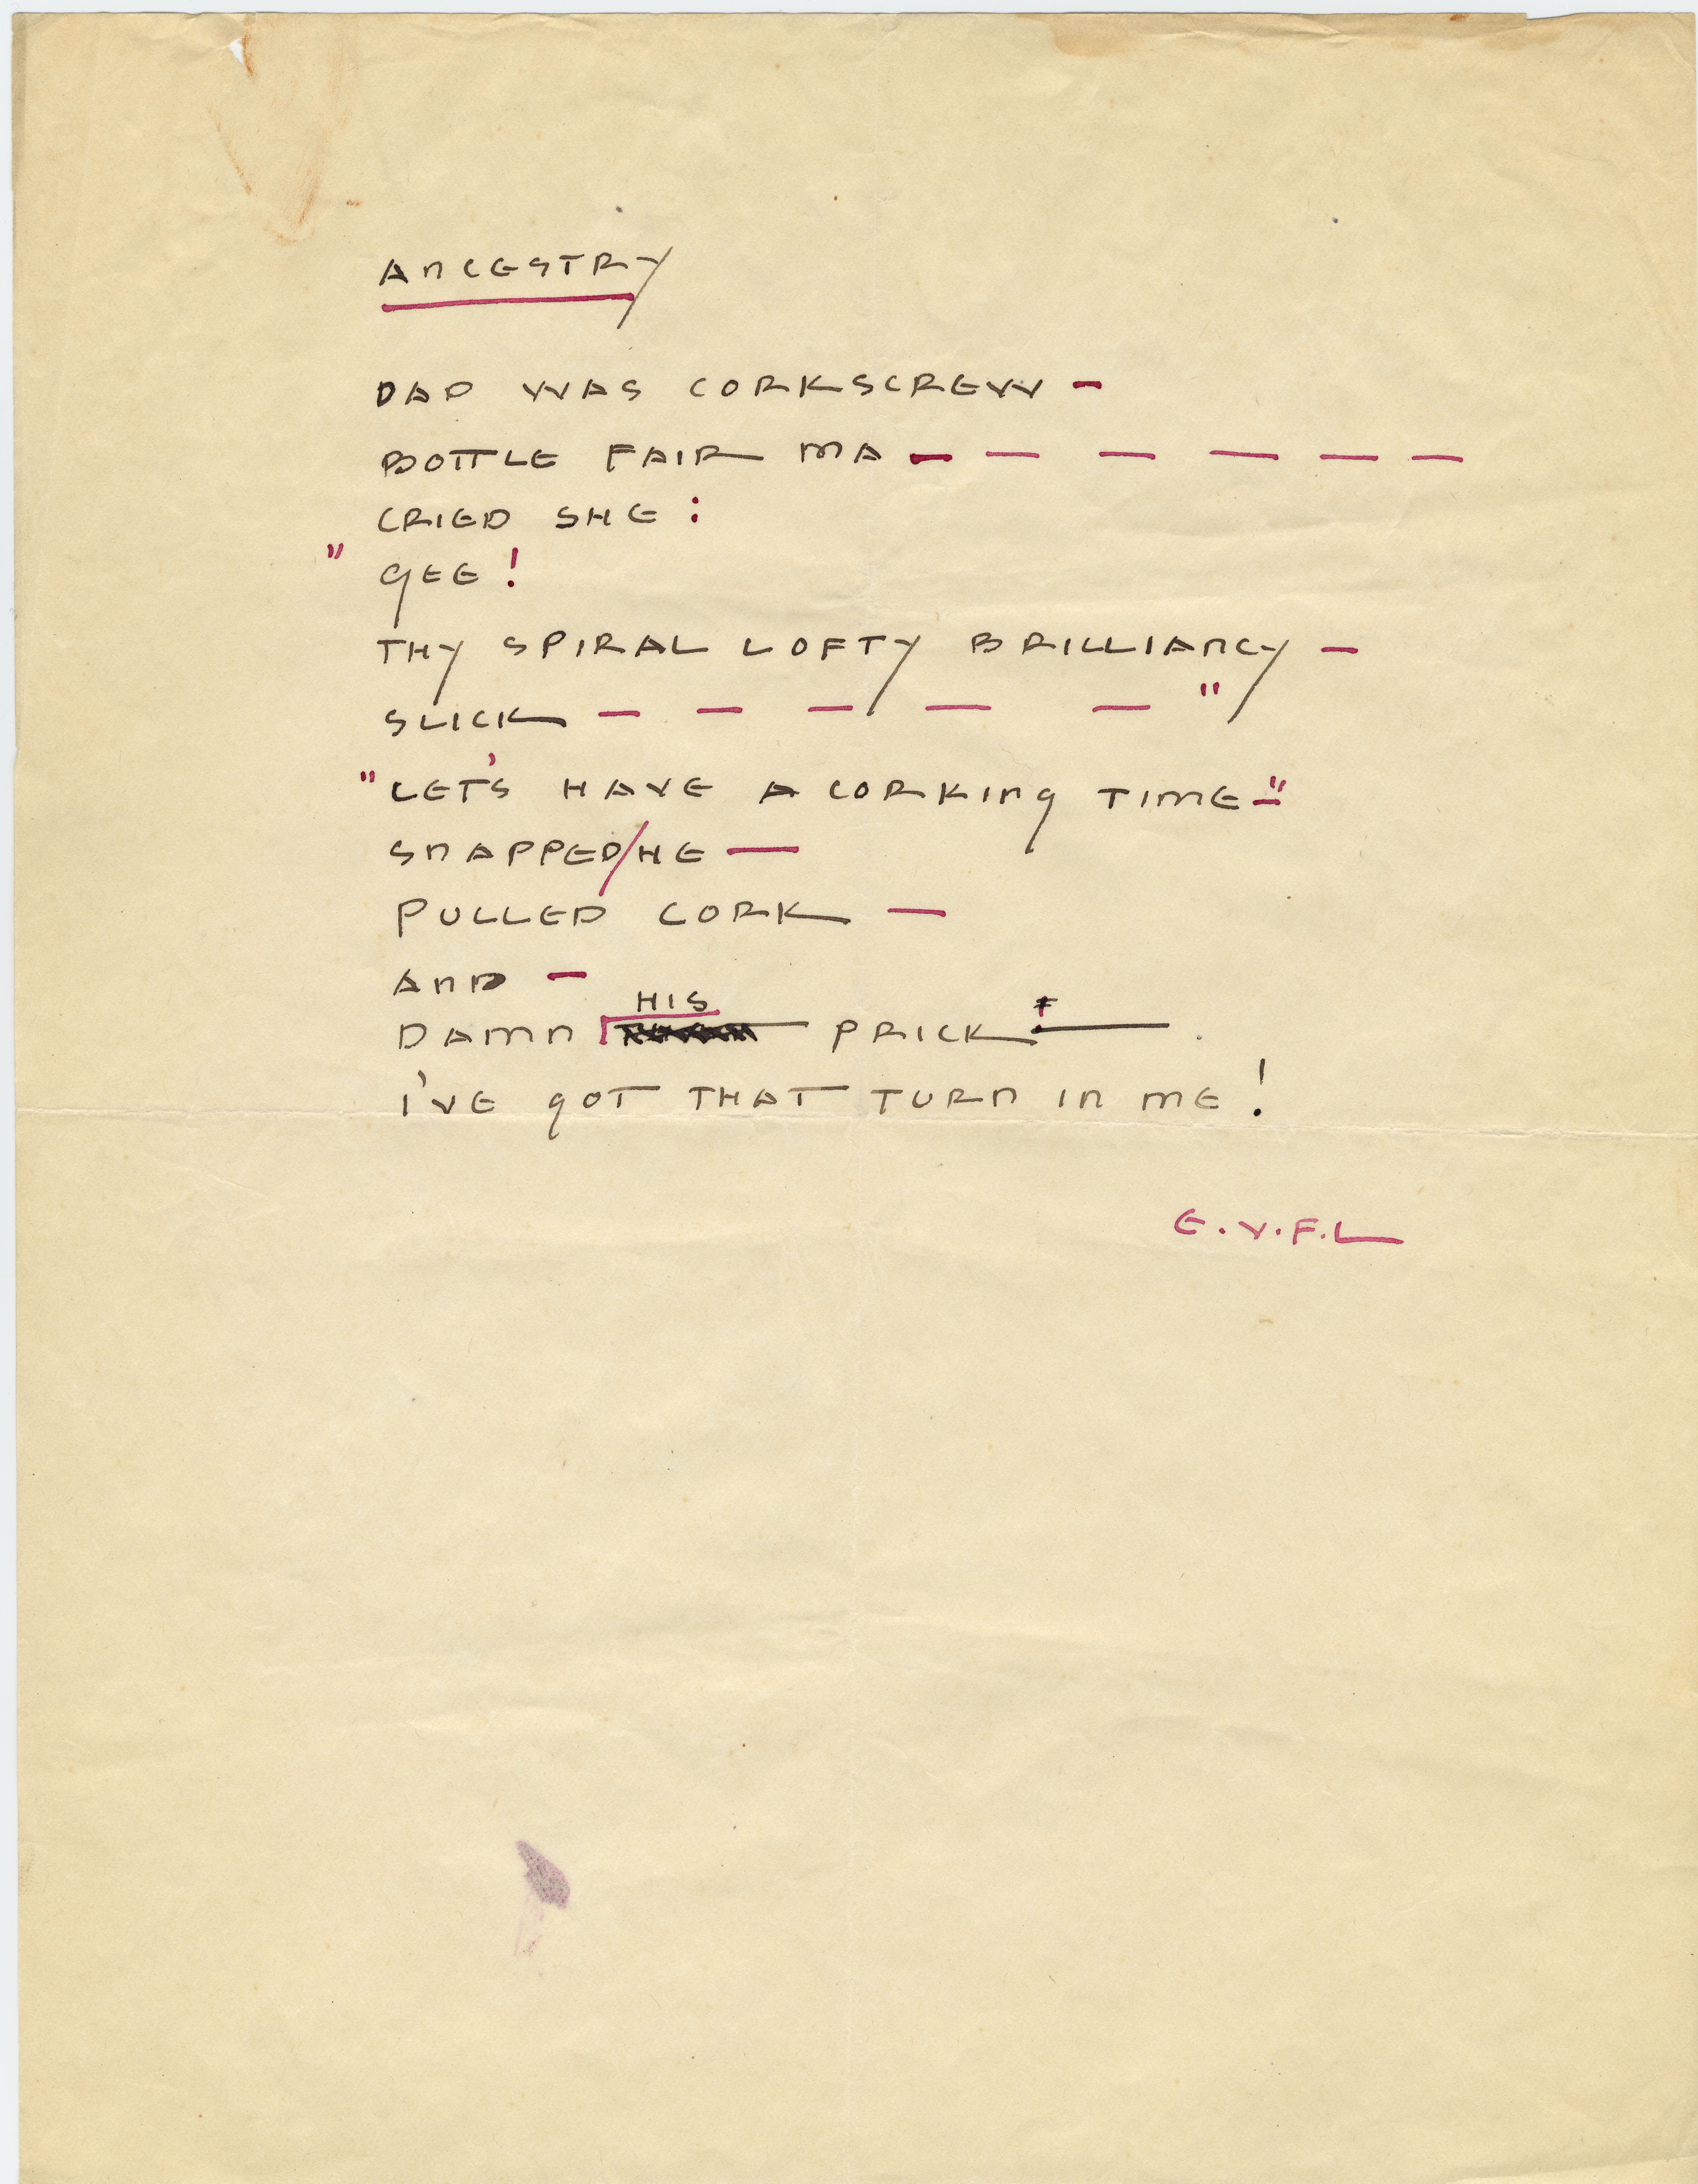 ANCESTRY
DAD WAS CORKSCREW –
BOTTLE FAIR MA – – – – – –
CRIED SHE :
"GEE!
THY SPIRAL LOFTY BRILLIANCY –
SLICK – – – – – "
"LET'S HAVE A CORKING TIME – "
SNAPPED/HE –
PULLED CORK –
AND –
HIS
DAMN PRICK ! –
I'VE GOT THAT TURN IN ME!
E.V.F.L